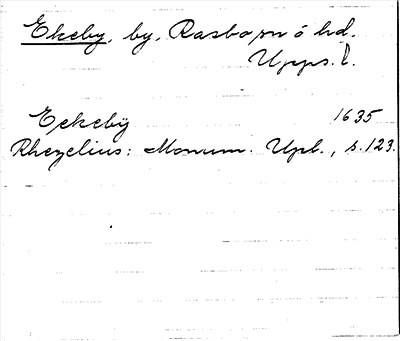 Ekeby, by, Rasbo sn o hd.
Upps. l.
Eekebÿ 1635
Rhezelius: Monum. Upl., s. 123.